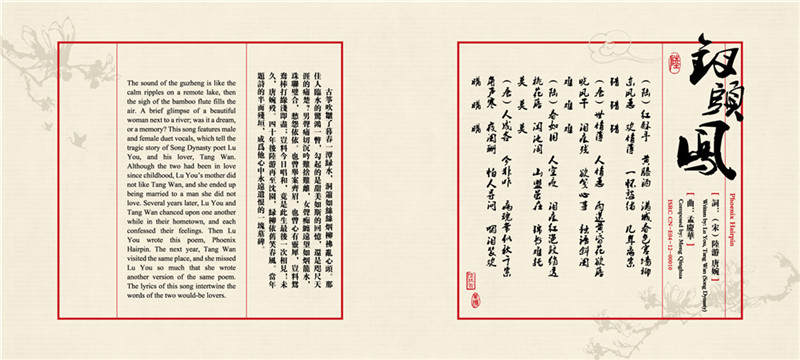 The sound of the guzheng is like the
calm ripples on a remote lake, then
the sigh of the bamboo flute fills the
air. A brief glimpse of a beautiful
woman next to a river; was it a dream,
or a memory? This song features male
and female duet vocals, which tell the
tragic story of Song Dynasty poet Lu
You, and his lover, Tang Wan.
Although the two had been in love
since childhood, Lu You's mother did
not like Tang Wan, and she ended up
being married to a man she did not
love. Several years later, Lu You and
Tang Wan chanced upon one another
while in their hometown, and each
confessed their feelings. Then Lu
You wrote this poem, Phoenix
Hairpin. The next year, Tang Wan
visited the same place, and she missed
Lu You so much that she wrote
another version of the same poem.
The lyrics of this song intertwine the
words of the two would-be lovers.
古筝吹皺了暮春一潭綠水，洞簫如絲絲烟柳拂亂心頭。那
佳人臨水的驚鴻一瞥，勾起的是甜美如斯的回憶，還是咫尺天
涯的痛楚？男聲痛切沉吟難捨難離，女聲痴纏遠望如烟
珠聯璧合，愁怨依依。也曾舉案齊眉，也曾心有靈犀，豈料鴛
鴦棒打緣淺即盡；豈料今日唱和，竟是此生最後一次相見；未
久，唐婉歿。四十年後陸游再至沈園，綠柳依舊笑春風。當年
題詩的半面殘垣，成爲他心中永遠遺恨的一塊墓碑。
釵頭鳳
陸
Phoenix Hairpin
［詞：（宋）陸游 唐婉］
Written by: Lu You, Tang Wan (Song Dynasty)
［曲：孟慶華］
Composed by: Meng Qinghua
ISRC CN-E04-12-00010
（陸）紅酥手 黃縢酒 滿城春色宮墻柳
東風惡 歡情薄 一懷愁緒 几年離索
錯 錯 錯
（唐）世情薄 人情惡 雨送黃昏花易落
曉風干 泪痕殘 欲箋心事 獨語斜闌
難 難 難
（陸）春如旧 人空瘦 泪痕紅浥鮫綃透
桃花落 閑池閣 山盟雖在 錦書難托
莫 莫 莫
（唐）人成各 今非昨 病魂常似秋千索
角聲寒 夜闌珊 怕人尋問 咽泪裝歡
瞞 瞞 瞞